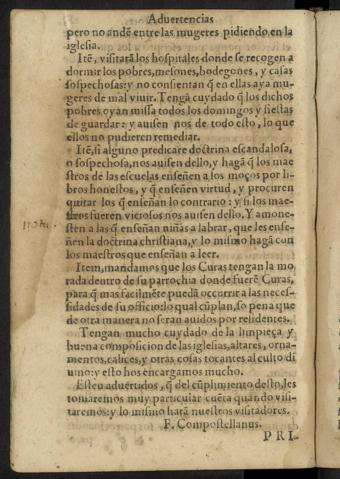 Aduertencias
pero no andē entre las mugeres pidiendo en la
iglesia.
Itē, visitarā los hospitales donde se recogen a
dormir los pobres, mesones, bodegones, y casas
sospechosas: y no consientan q̄ en ellas aya mu-
geres de mal viuir. Tengā cuydado q̄ los dichos
pobres oyan missa todos los domingos y fiestas
de guardar: y auisen nos de todo esto, lo que
ellos no pudieren remediar.
Itē, si alguno predicare doctrina escandalosa,
o sospechosa, nos auisen dello, y hagā q̄ los mae
stros de las escuelas enseñen a los moços por li-
bros honestos, y q̄ enseñen virtud, y procuren
quitar los q̄ enseñan lo contrario: y si los mae-
stros fueren viciosos nos auisen dello. Y amone-
sten a las q̄ enseñan niñas a labrar, que les ense-
ñen la doctrina christiana, y lo mismo hagā con
los maestros que enseñan a leer.
Item, mandamos que los Curas tengan la mo
rada dentro de su parrochia donde fuerē Curas,
para q̄ mas facilmēte puedā occurrir a las neces-
sidades de su officio: lo qual cūplan, so pena que
de otra manera no seran auidos por residentes.
Tengan mucho cuydado de la limpieça, y
buena composicion de las iglesias, altares, orna-
mentos, calices, y otras cosas tocantes al culto di
uino: y esto hos encargamos mucho.
Esteu aduertidos, q̄ del cūplimiento desto, les
tomaremos muy particular cuēta quando visi-
taremos: y lo mismo harā nuestros visitadores.
F. Compostellanus.
PRI-